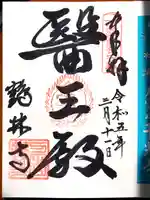 奉拝
令和五年
二月十一日
醫王殿
鶴林寺